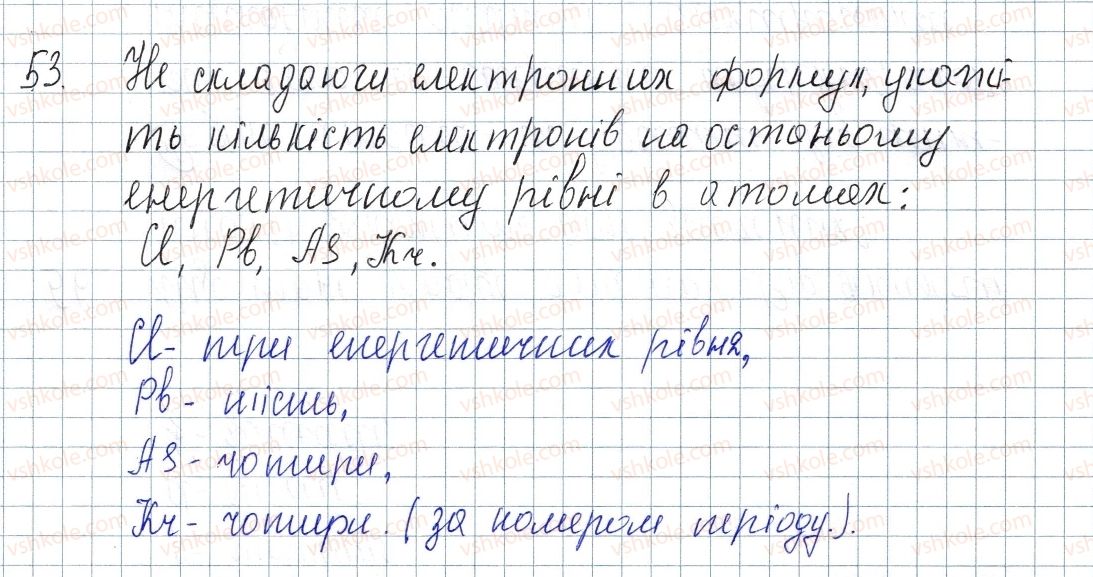 53. Не складаючи електронних формул, укажі-
ть кількість електронів на останьому
енергетичному рівні в атомах:
Cl, Pb, As, Kr.
Cl - три енергетичних рівня,
Pb - шість,
As - чотири,
Kr - чотири. (за номером періоду.).